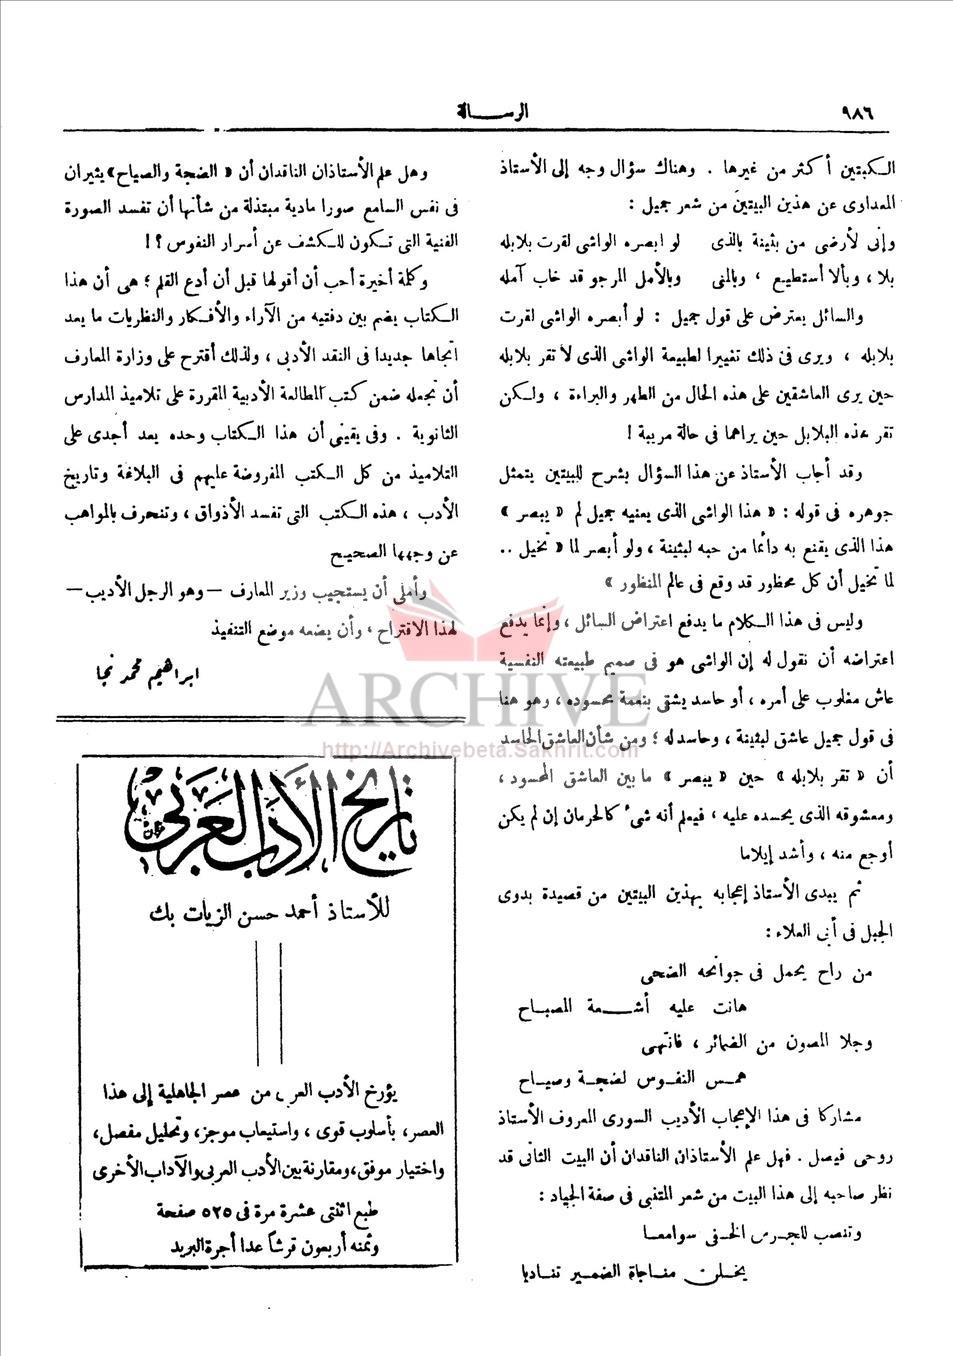 ٩٨٦
الرسالة
الكبتين أكثر من غيرها . وهناك سؤال وجه إلى الأستاذ
المعداوى عن هذين البيتين من شعر جميل :
وإنى لأرضى من بثينة بالذى لو ابصره الواشى لقرت بلابله
بلا ، وبألا أستطيع ، وبالمنى وبالأمل المرجو قد خاب آمله
والسائل يعترض على قول جميل : لو أبصره الواشى لقرت
بلابله ، ويرى فى ذلك تغييرا لطبيعة الواشى الذى لا تقر بلابله
حين يرى العاشقين على هذه الحال من الطهر والبراءة ، ولكن
تقر هذه البلابل حين يراهما فى حالة مريبة !
وقد أجاب الأستاذ عن هذا السؤال بشرح للبيتين يتمثل
جوهره فى قوله : « هذا الواشى الذى يعنيه جميل لم « يبصر »
هذا الذى يقنع به دائما من حبه لبثينة ، ولو أبصر لما « تخيل ..
لما تخيل أن كل محظور قد وقع فى عالم المنظور »
وليس فى هذا الكلام ما يدفع اعتراض السائل ، وإنما يدفع
اعتراضه أن نقول له إن الواشى هو فى صميم طبيعته النفسية
عاش مغلوب على أمره ، أو حاسد يشقى بنعمة محسوده ، وهو هنا
فى قول جميل عاشق لبثينة ، وحاسد له ؛ ومن شأن العاشق الحاسد
أن « تقر بلابله » حين « يبصر » ما بين العاشق المحسود ،
ومعشوقه الذى يحسده عليه ، فيعلم أنه شىء كالحرمان إن لم يكن
أوجع منه ، وأشد إيلاما
ثم يبدى الأستاذ إعجابه بهذين البيتين من قصيدة بدوى
الجبل فى أبى العلاء :
من راح يحمل فى جوانحه الضحى
هانت عليه أشعة المصباح
وجلا المصون من الضمائر ، فانتهى
همس النفوس لضجة وصياح
مشاركا فى هذا الإعجاب الأديب السورى المعروف الأستاذ
روحى فيصل . فهل علم الأستاذان الناقدان أن البيت الثانى قد
نظر صاحبه إلى هذا البيت من شعر المتنبى فى صفة الجياد :
وتنصب للجرس الخفى سوامعا
يخلن مناجاة الضمير تناديا
وهل علم الأستاذان الناقدان أن « الضجة والصياح » يثيران
فى نفس السامع صورا مادية مبتذلة من شأنها أن تفسد الصورة
الفنية التى تكون للكشف عن أسرار النفوس ؟!
وكلمة أخيرة أحب أن أقولها قبل أن أدع القلم ؛ هى أن هذا
الكتاب يضم بين دفتيه من الآراء والأفكار والنظريات ما يعد
اتجاها جديدا فى النقد الأدبى ، ولذلك أقترح على وزارة المعارف
أن تجعله ضمن كتب المطالعة الأدبية المقررة على تلاميذ المدارس
الثانوية . وفى يقينى أن هذا الكتاب وحده يعد أجدى على
التلاميذ من كل الكتب المفروضة عليهم فى البلاغة وتاريخ
الأدب ، هذه الكتب التى تفسد الأذواق ، وتنحرف بالمواهب
عن وجهها الصحيح
وأملى أن يستجيب وزير المعارف — وهو الرجل الأديب —
لهذا الاقتراح ، وأن يضعه موضع التنفيذ
ابراهيم محمد نجا
ARCHIVE
http://Archivebeta.Sakhrit.com
تاريخ الأدب العربى
للأستاذ أحمد حسن الزيات بك
يؤرخ الأدب العربى من عصر الجاهلية إلى هذا
العصر، بأسلوب قوى ، واستيعاب موجز، وتحليل مفصل،
واختيار موفق، ومقارنة بين الأدب العربى والآداب الأخرى
طبع اثنتى عشرة مرة فى ٥٢٥ صفحة
وثمنه أربعون قرشاً عدا أجرة البريد